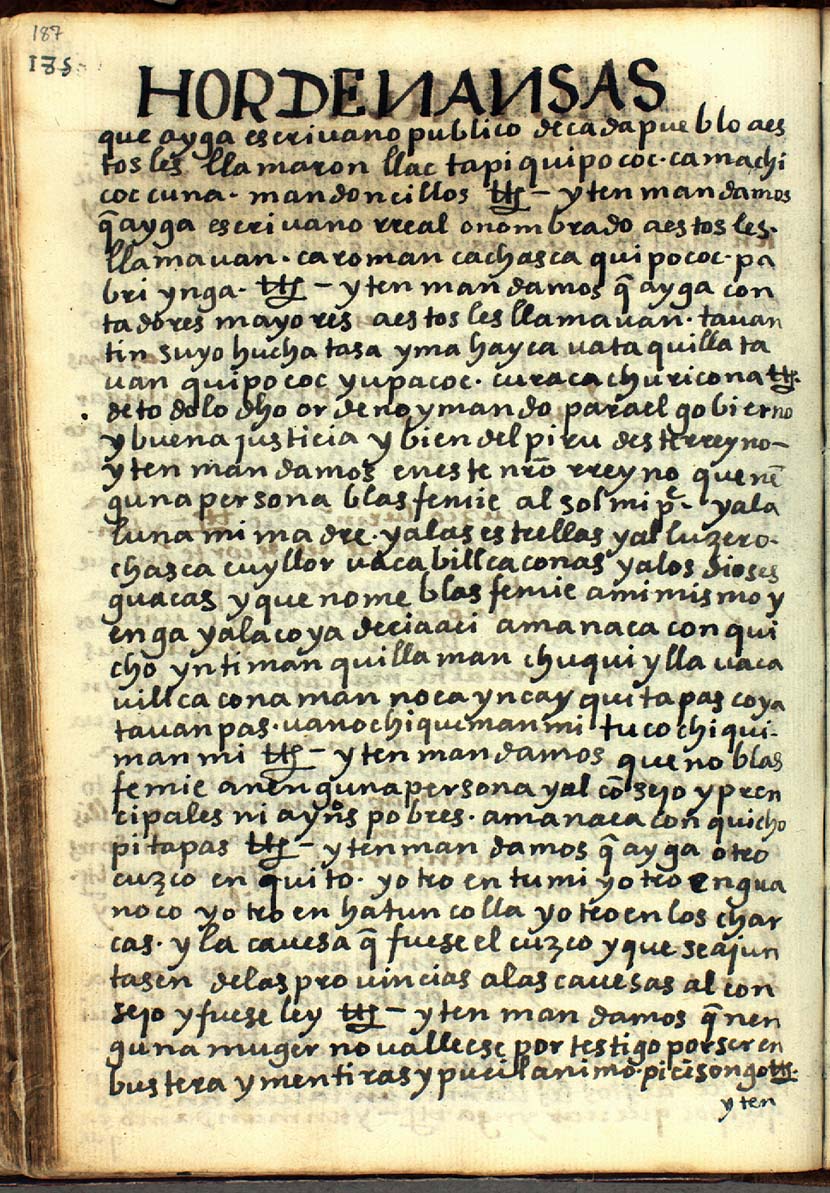 187
185
HORDENANSAS
que ayga escrivano publico de cada pueblo a es
tos les llamaron llactapi quipococ. camachi
coc cuna. mandoncillos etc̃ – yten mandamos
q̃ ayga escrivano rreal o nombrado a estos les.
llamauan. caroman cachasca quipococ. pa
bri ynga. etc̃ – yten mandamos q̃ ayga con
tadores mayores a estos les llamauan. tauan
tin suyo huchatasa yma hayca uata quilla ta
uan quipococ yupacoc. curaca churicona etc̃.
de todo lo dho ordeno y mando para el gobierno
y buena justicia y bien del piru deste rreyno –
yten mandamos en este nr̃o rreyno que nẽ
guna persona blasfemie al sol mi p̃e – y a la
luna mi madre. y a las estrellas y al luzero.
chasca cuyllor uaca billcaconas y a los dioses
guacas y que no me blasfemie a mi mismo y
enga y a la coya decia aci ama ñacaconqui
cho yntiman quillaman chuqui ylla uaca
uillcaconaman noca yncayquitapas coya
tauanpas. uanochiquemanmi tucochiqui-
manmi etc̃ – yten mandamos que no blas
femie a nenguna persona y al cõsejo y pren
cipales ni a ynõs pobres. ama ñacaconquicho
pitapas etc̃ – yten mandamos q̃ ayga otro
cuzco en quito. y otro en tumi y otro en gua
noco y otro en hatuncolla y otro en los char
cas. y la cavesa q̃ fuese el cuzco y que se ajun
tasen de las provincias a las cavesas al con
sejo y fuese ley etc̃ – yten mandamos q̃ nen
guna muger no valleese por testigo por ser en
bustera y mentiras y pucilanimo. pici songo etc̃.
yten